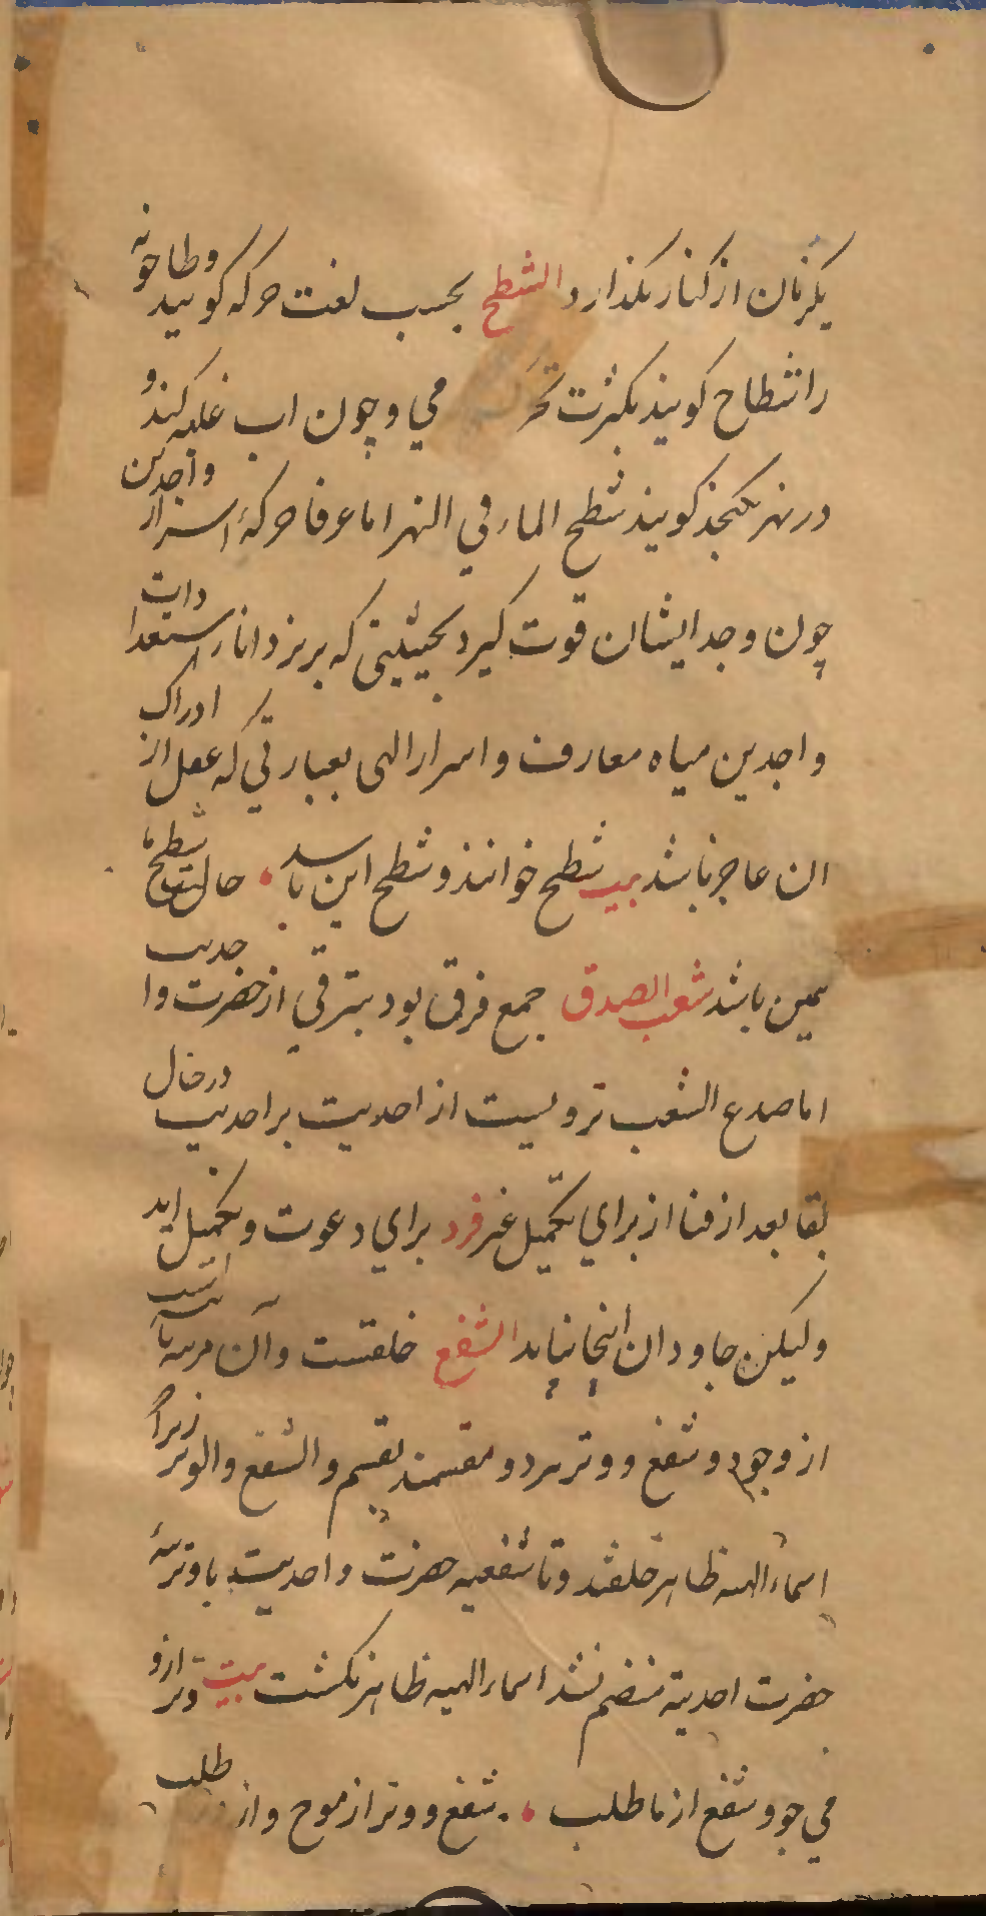 یکزمان از کنار نکذارد الشطح بحسب لغت حرکه کویید وطاحونه
را شطاح کویند بکثرت می وچون اب غلبه کند و
در نهر نکنجد کویند شطح الماء في النهر اما عرفا حرکهٔ اسرار واجدین
چون وجد ایشان قوت کیرد بحیثیتی که بریزد از استعدادات
واجدین میاه معارف و اسرار الهی بعبارتي که عقل از ادراک
ان عاجز باشد بیت شطح خوانند وشطح این باشد • حالت
باشد شعب الصدق جمع فرق بود بترقي از حضرت واحدیت
اما صدع الشعب از احدیت بر احدیت در حال
بقا بعد از فنا از براي تکمیل غیر فرد براي دعوت و تکمیل اید
ولیکن جاودان اینجا نپاید الشفع خلقست وآن مرتبه باشد
از وجود و شفع و وتر هردو مقسمند بقسم والشفع والوتر زیرا که
اسماء الهیه ظاهر خلقند وتا شفعیه حضرت واحدیت با وتریه
حضرت احدیة منضم نشد اسماء الهیه ظاهر نکشت بیت وتر ازو
می جو و شفع از ما طلب • شفع و وتر از موج و از طلب